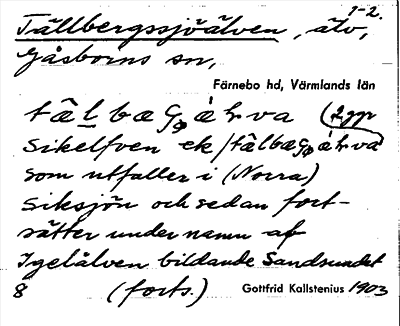 1-2.
Tällbergssjöälven, älv,
Gåsborns sn,
Färnebo hd, Värmlands län
(2 ggr
Sikelfven ek
som utfaller i (Norra)
Siksjön och sedan fort-
sätter under namn af
Igelälven bildande Sandsundet
8 (forts.) Gottfrid Kallstenius 1903